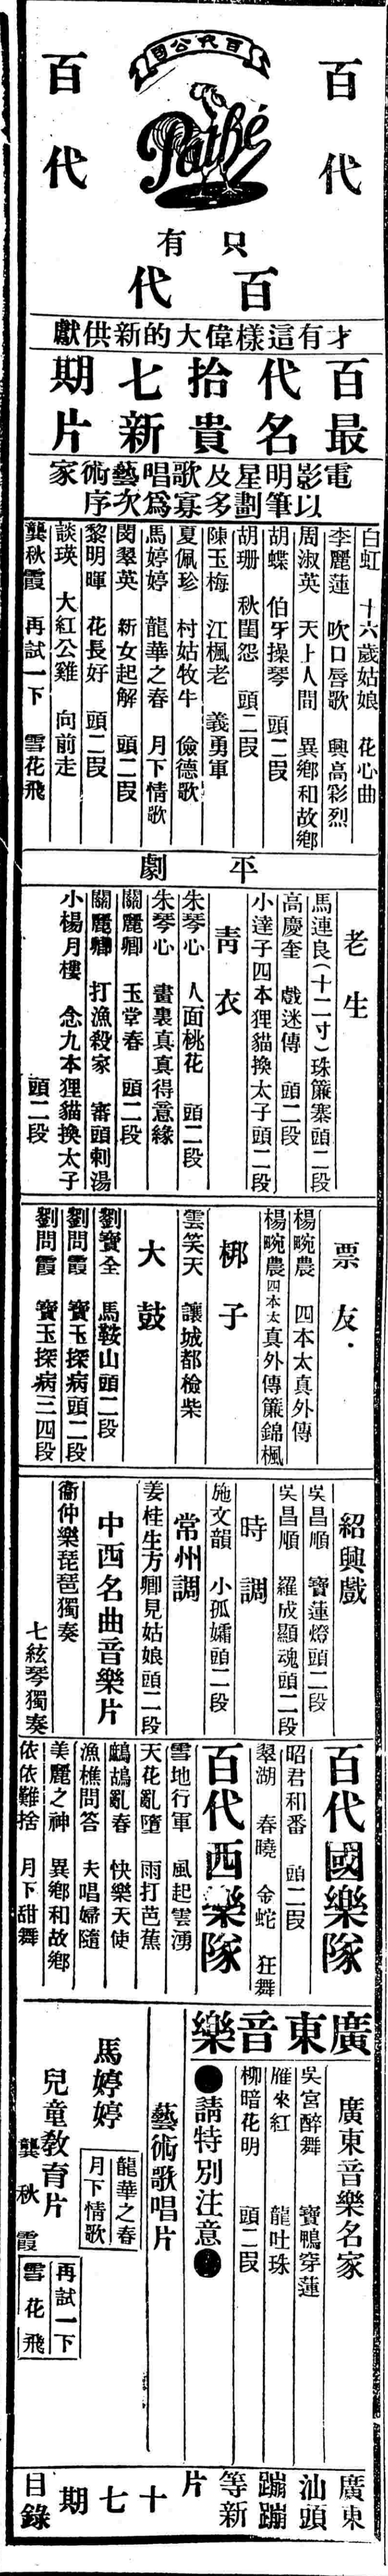 百代公司
Pathé
百代
百代
只有
百代
才有這樣偉大的新供獻
百代拾七期
最名貴新片
電影明星及歌唱藝術家
以筆劃多寡為次序
白虹 十六歲姑娘 花心曲
李麗蓮 吹口唇歌 興高彩烈
周淑英 天上人間 異鄉和故鄉
胡蝶 伯牙操琴 頭二段
胡珊 秋閨怨 頭二段
陳玉梅 江楓老 義勇軍
夏佩珍 村姑牧牛 儉德歌
馬婷婷 龍華之春 月下情歌
閔翠英 新女起解 頭二段
黎明暉 花長好 頭二段
談瑛 大紅公雞 向前走
龔秋霞 再試一下 雪花飛
平劇
老生
馬連良(十二寸)珠簾寨頭二段
高慶奎 戲迷傳 頭二段
小達子四本狸貓換太子頭二段
青衣
朱琴心 人面桃花 頭二段
朱琴心 畫裏真真得意緣
關麗卿 玉堂春 頭二段
關麗卿 打漁殺家 審頭刺湯
小楊月樓 念九本狸貓換太子
頭二段
票友
楊畹農 四本太真外傳
楊畹農四本太真外傳簾錦楓
梆子
雲笑天 讓城都檢柴
大鼓
劉寶全 馬鞍山頭二段
劉問霞 寶玉探病頭二段
劉問霞 寶玉探病三四段
紹興戲
吳昌順 寶蓮燈頭二段
吳昌順 羅成顯魂頭二段
時調
施文韻 小孤孀頭二段
常州調
姜桂生方卿見姑娘頭二段
中西名曲音樂片
衞仲樂琵琶獨奏
七絃琴獨奏
百代國樂隊
昭君和番 頭二段
翠湖春曉 金蛇狂舞
百代西樂隊
雪地行軍 風起雲湧
天花亂墮 雨打芭蕉
鷓鴣亂春 快樂天使
漁樵問答 夫唱婦隨
美麗之神 異鄉和故鄉
依依難捨 月下甜舞
廣東音樂
廣東音樂名家
吳宮醉舞 寶鴨穿蓮
雁來紅 龍吐珠
柳暗花明 頭二段
●請特別注意●
藝術歌唱片
馬婷婷
龍華之春
月下情歌
兒童教育片
龔秋霞
再試一下
雪花飛
廣東
汕頭
蹦蹦
等新
片
十七期
目錄